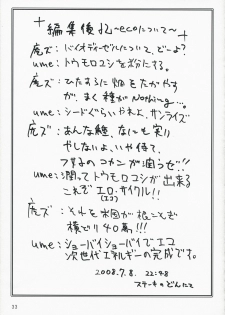 編集後記 ~ecoについて~
虎ズ：バイオディーゼルについて、どーよ?
ume：トウモロコシを粉にする。
虎ズ：ひたすらに畑をたがやすが、まく種がNothing…。
ume：シードぐらいやれよ、サンライズ
虎ズ：あんな種、なにも実りやしないよ、いや待て、フタ子のコカンが潤うぜ!!
ume：潤ってトウモロコシが出来るこれぞエロ・サイクル!!
(エコ)
虎ズ：それを米国が根こそぎ横どり40萬!!!
ume：ショーバイショーバイでエコ次世代エネルギーの完成です。
2008.7.8. 22:48
ステーキのどんたて
33